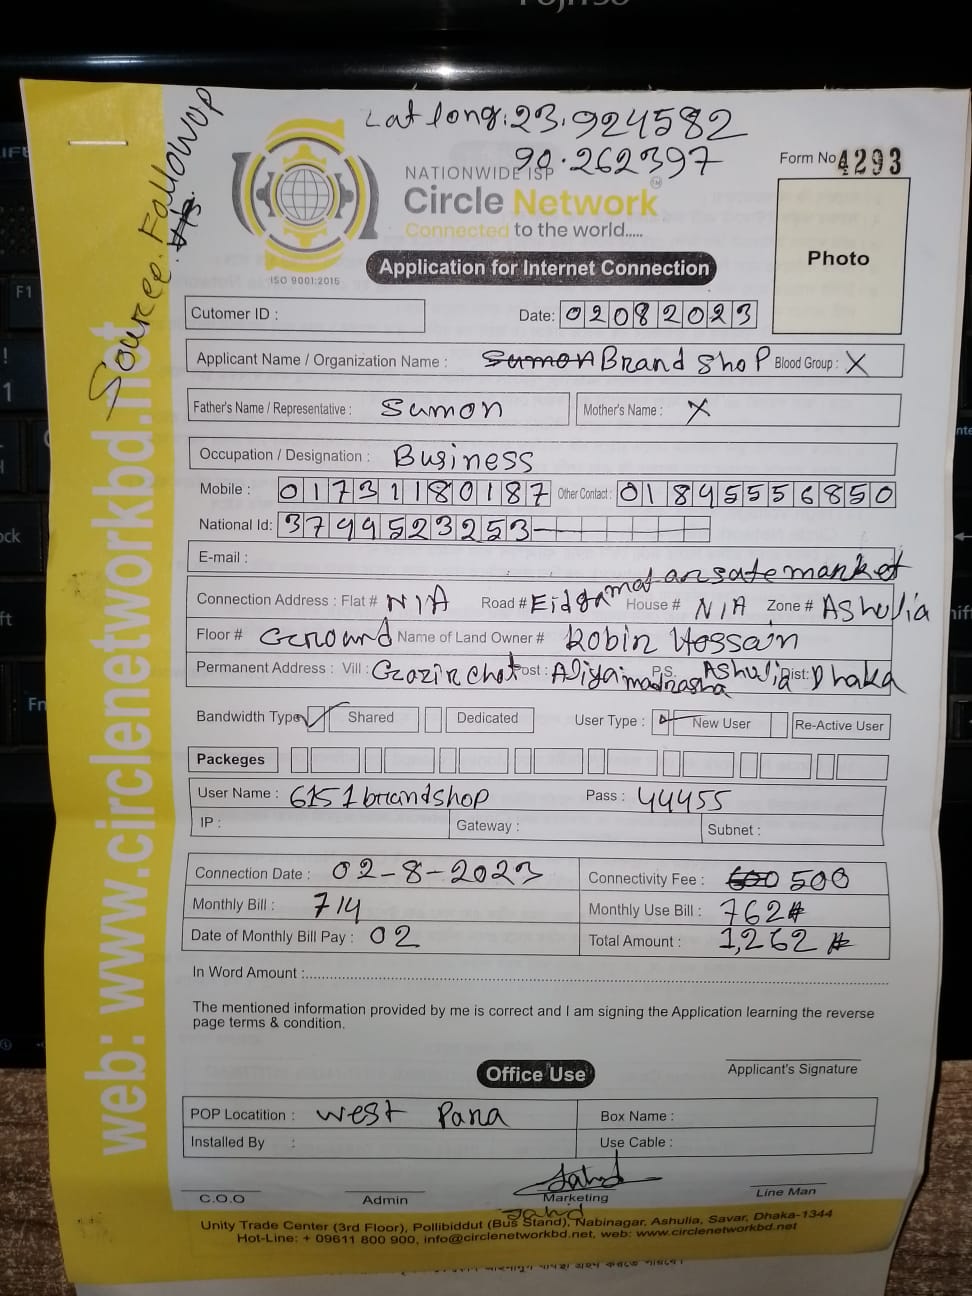 FUJITSU
Lat long: 23.924582
90.262397
Source. Followup
NATIONWIDE ISP
Circle Network
TM
Connected to the world.....
ISO 9001:2015
Form No 4293
Photo
Application for Internet Connection
Cutomer ID :
Date: 02082023
Applicant Name / Organization Name : Sumon Brand Shop Blood Group : X
Father's Name / Representative : Sumon Mother's Name : X
Occupation / Designation : Business
Mobile : 01731180187 Other Contact : 01845556850
National Id: 3799523253
E-mail :
Connection Address : Flat # N/A Road # Eidgamat ansate market House # N/A Zone # Ashulia
Floor # Ground Name of Land Owner # Robin Hossain
Permanent Address : Vill : Gazirchot Post : Aliya madrasha P.S. Ashulia Dist: Dhaka
Bandwidth Type Shared Dedicated User Type : New User Re-Active User
Packeges
User Name : 6151brandshop Pass : 44455
IP : Gateway : Subnet :
Connection Date : 02-8-2023 Connectivity Fee : 600 500
Monthly Bill : 714 Monthly Use Bill : 762
Date of Monthly Bill Pay : 02 Total Amount : 1,262
In Word Amount :
The mentioned information provided by me is correct and I am signing the Application learning the reverse
page terms & condition.
Applicant's Signature
Office Use
POP Locatition : West Para Box Name :
Installed By : Use Cable :
C.O.O Admin Marketing Line Man
Jahid
Unity Trade Center (3rd Floor), Pollibiddut (Bus Stand), Nabinagar, Ashulia, Savar, Dhaka-1344
Hot-Line: + 09611 800 900, info@circlenetworkbd.net, web: www.circlenetworkbd.net
web: www.circlenetworkbd.net